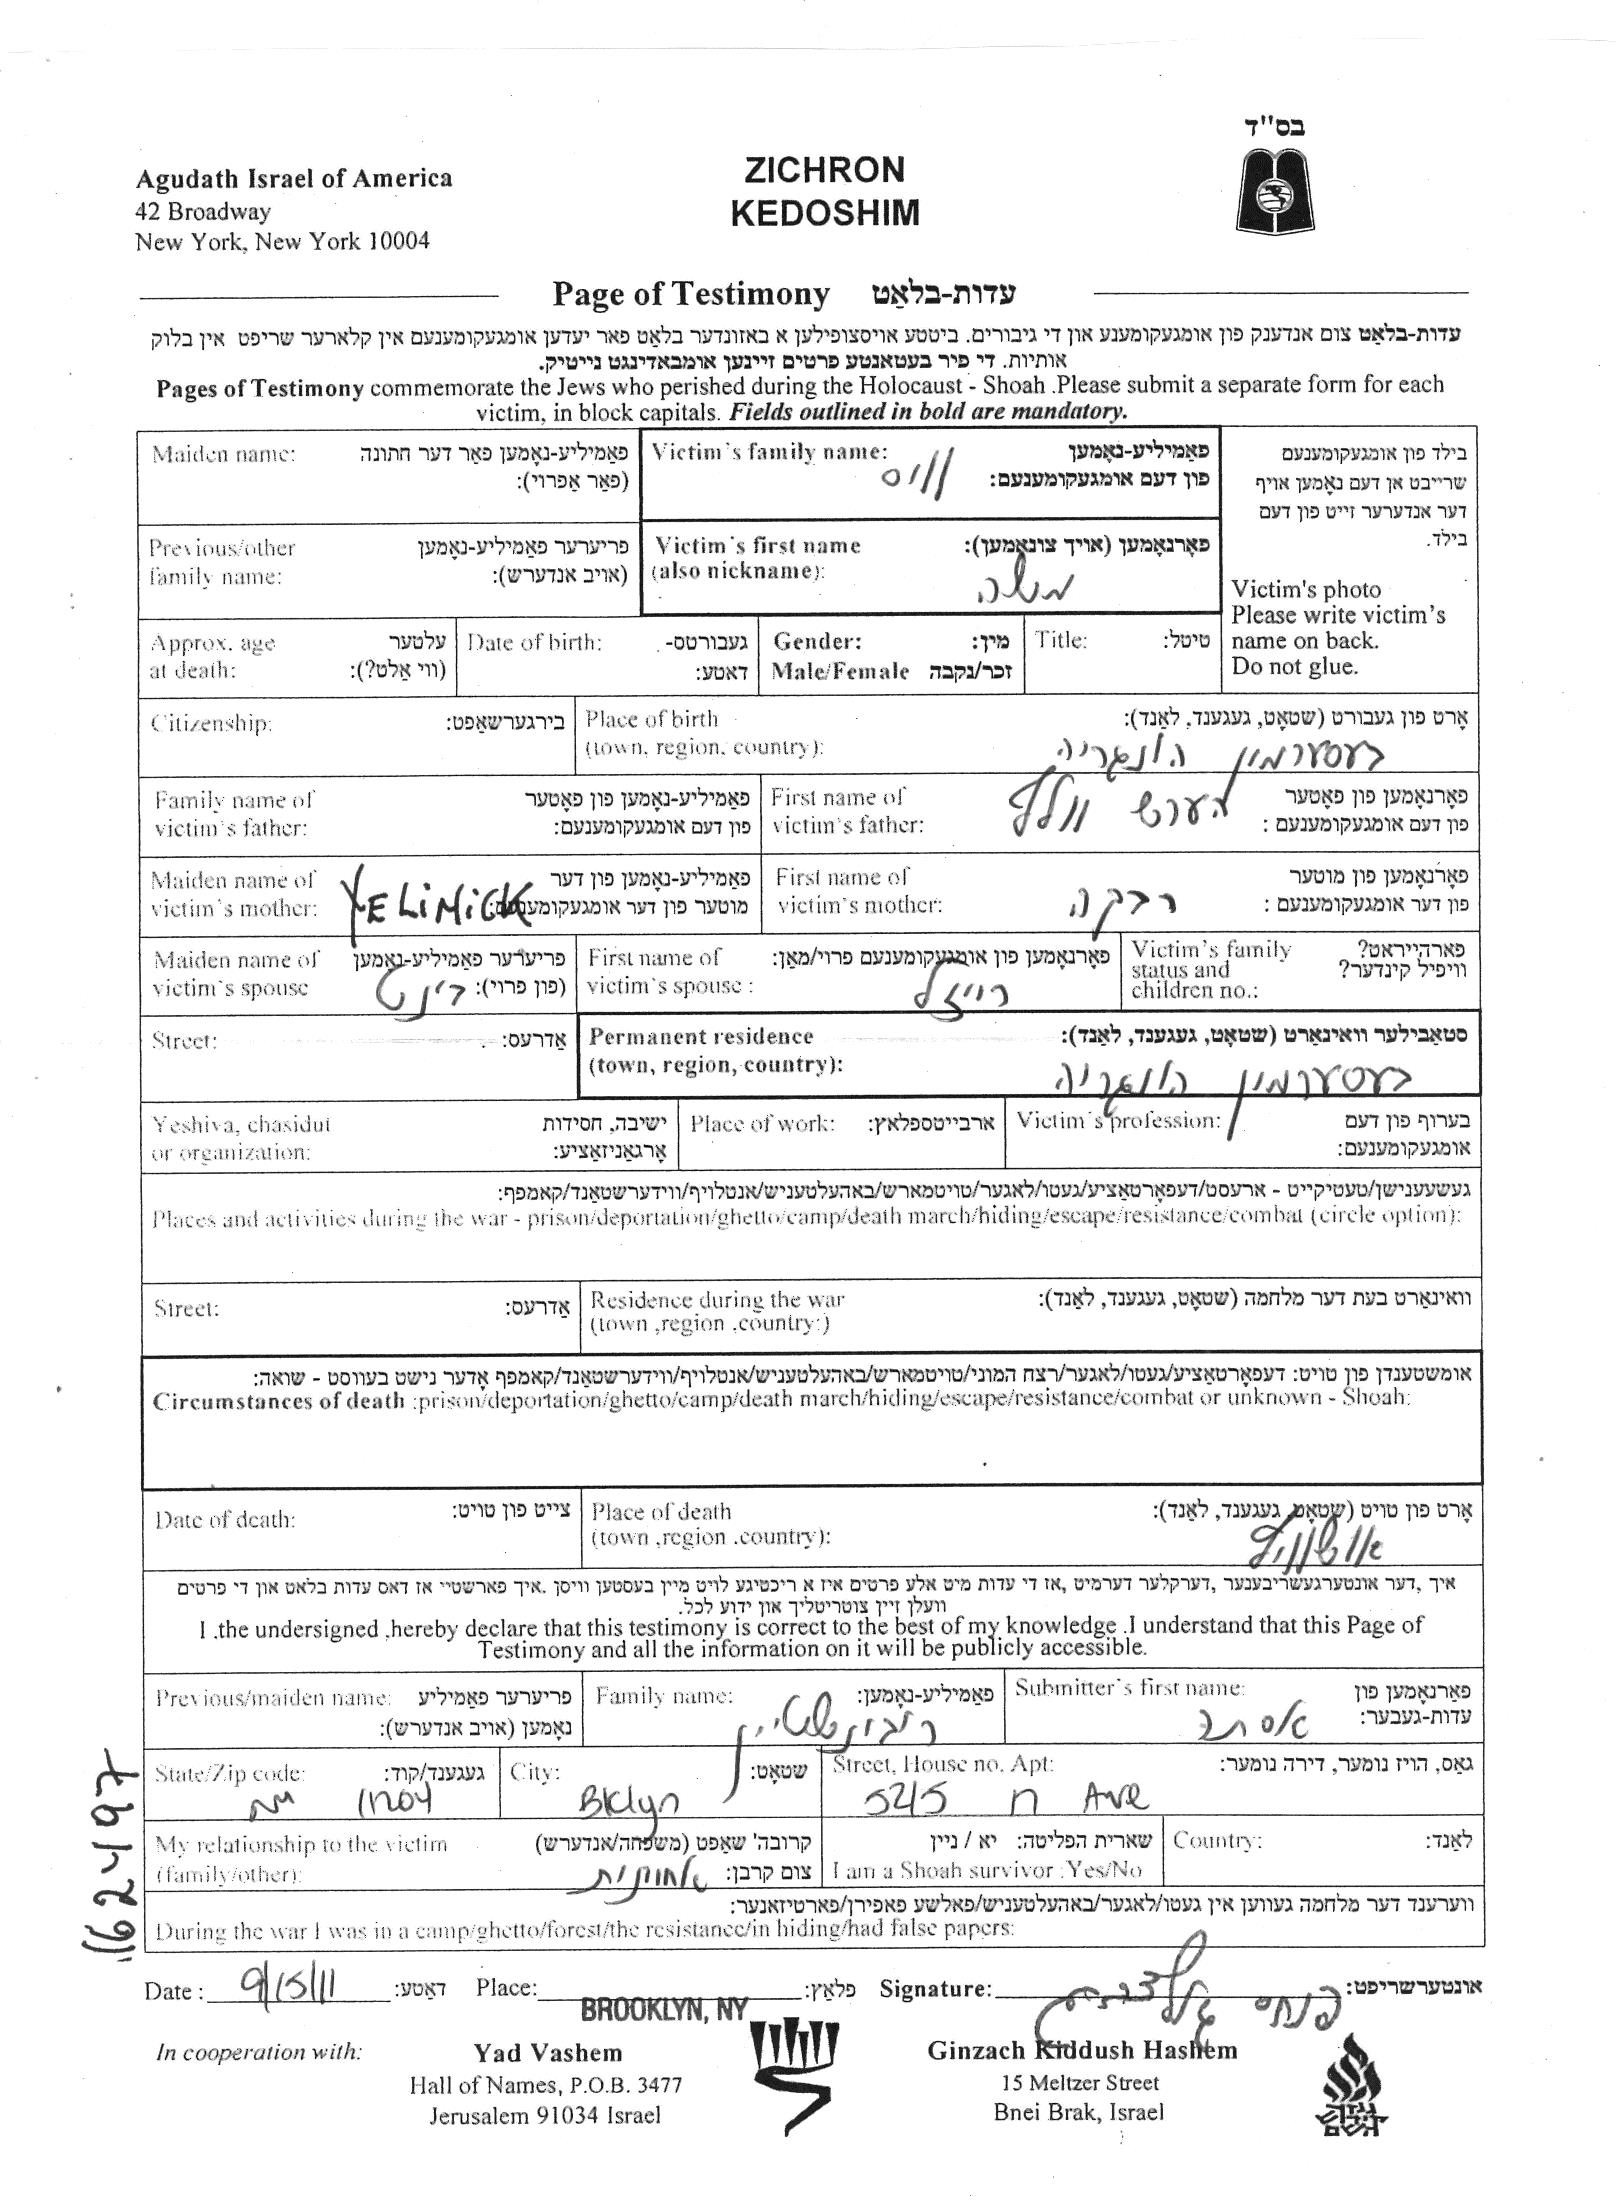 בס"ד
Agudath Israel of America
42 Broadway
New York, New York 10004
ZICHRON
KEDOSHIM
Page of Testimony עדות-בלאַט
עדות-בלאַט צום אנדענק פון אומגעקומענע און די גיבורים. ביטטע אויסצופילען א באזונדער בלאט פאר יעדען אומגעקומענעם אין קלארער שריפט אין בלוק
אותיות. די פיר בעטאנטע פרטים זיינען אומבאדינגט נייטיק.
Pages of Testimony commemorate the Jews who perished during the Holocaust - Shoah .Please submit a separate form for each
victim, in block capitals. Fields outlined in bold are mandatory.
Maiden name: פאַמיליע-נאָמען פאַר דער חתונה
(פאַר אַפרוי):
Victim's family name: פאַמיליע-נאָמען
פון דעם אומגעקומענעם:
ווייס
בילד פון אומגעקומענעם
שרייבט אן דעם נאָמען אויף
דער אנדערער זייט פון דעם
בילד.
Victim's photo
Please write victim's
name on back.
Do not glue.
Previous/other פריערער פאַמיליע-נאָמען
family name: (אויב אנדערש):
Victim's first name פאָרנאָמען (אויך צונאָמען):
(also nickname):
משה
Approx. age עלטער
at death: (ווי אַלט?):
Date of birth: געבורטס-
דאַטע:
Gender: מין:
Male/Female זכר/נקבה
Title: טיטל:
Citizenship: בירגערשאַפט:
Place of birth אָרט פון געבורט (שטאָט, געגענד, לאַנד):
(town, region, country):
בעסערמין הונגריה
Family name of פאַמיליע-נאָמען פון פאָטער
victim's father: פון דעם אומגעקומענעם:
First name of פאָרנאָמען פון פאטער
victim's father: פון דעם אומגעקומענעם :
הערש וולף
Maiden name of פאַמיליע-נאָמען פון דער
victim's mother: מוטער פון דער אומגעקומענעם:
YELIMICK
First name of פאָרנאָמען פון מוטער
victim's mother: פון דער אומגעקומענעם :
רבקה
Maiden name of פריערער פאַמיליע-נאָמען
victim's spouse (פון פרוי):
First name of פאָרנאָמען פון אומגעקומענעם פרוי/מאַן:
victim's spouse :
רייזל
Victim's family פארהייראט?
status and וויפיל קינדער?
children no.:
Street: אַדרעס:
Permanent residence סטאַבילער וואינאַרט (שטאָט, געגענד, לאַנד):
(town, region, country):
בעסערמין הונגריה
Yeshiva, chasidut ישיבה, חסידות
or organization: אָרגאַניזאַציע:
Place of work: ארבייטספלאץ:
Victim's profession: בערוף פון דעם
אומגעקומענעם:
געשעענישן/טעטיקייט - ארעסט/דעפּאָרטאַציע/געטו/לאגער/טויטמארש/באהעלטעניש/אנטלויף/ווידערשטאַנד/קאמפף:
Places and activities during the war - prison/deportation/ghetto/camp/death march/hiding/escape/resistance/combat (circle option):
Street: אַדרעס:
Residence during the war וואינאַרט בעת דער מלחמה (שטאָט, געגענד, לאַנד):
(town ,region .country:)
אומשטענדן פון טויט: דעפּאָרטאַציע/געטו/לאגער/רצח המוני/טויטמארש/באהעלטעניש/אנטלויף/ווידערשטאַנד/קאמפף אָדער נישט בעווסט - שואה:
Circumstances of death :prison/deportation/ghetto/camp/death march/hiding/escape/resistance/combat or unknown - Shoah:
Date of death: צייט פון טויט:
Place of death אָרט פון טויט (שטאָט, געגענד, לאַנד):
(town ,region .country):
אושוויץ
איך ,דער אונטערגעשריבענער ,דערקלער דערמיט ,אז די עדות מיט אלע פרטים איז א ריכטיגע לויט מיין בעסטען וויסן .איך פארשטיי אז דאס עדות בלאט און די פרטים
וועלן זיין צוטריטליך און ידוע לכל.
I .the undersigned ,hereby declare that this testimony is correct to the best of my knowledge .I understand that this Page of
Testimony and all the information on it will be publicly accessible.
Previous/maiden name: פריערער פאַמיליע
נאָמען (אויב אנדערש):
Family name: פאַמיליע-נאָמען:
רובינשטיין
Submitter's first name: פאַרנאָמען פון
עדות-געבער:
אסתר
State/Zip code: געגענד/קוד:
NY 11204
City: שטאָט:
Bklyn
Street, House no. Apt: גאַס, הויז נומער, דירה נומער:
5215 17 Ave
My relationship to the victim קרובה' שאפט (משפחה/אנדערש)
(family/other): צום קרבן:
שארית הפליטה: יא / ניין
I am a Shoah survivor :Yes/No
Country: לאַנד:
ווערענד דער מלחמה געווען אין געטו/לאגער/באהעלטעניש/פאלשע פאפירן/פארטיזאנער:
During the war I was in a camp/ghetto/forest/the resistance/in hiding/had false papers:
Date : 9/15/11 דאַטע: Place: BROOKLYN, NY פלאַץ: Signature: אונטערשריפט:
In cooperation with:
Yad Vashem
Hall of Names, P.O.B. 3477
Jerusalem 91034 Israel
Ginzach Kiddush Hashem
15 Meltzer Street
Bnei Brak, Israel